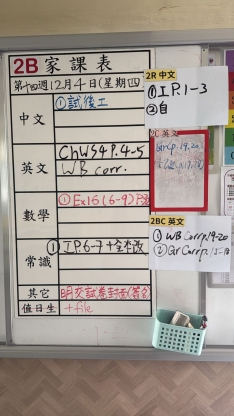 2B 家課表
第十四週12月4日(星期四
中文
①試後工
英文
Ch WS4 P.4-5
WB corr.
數學
①Ex16(6-9)
常識
①I.P.6-7+全本改
其它
明交試卷封面(簽名)
值日生
+file
2R 中文
①I.P.1-3
②自
英文
Gr Cp.19,20
2BC 英文
①WB Corr p.19-20
②Gr Corr p.